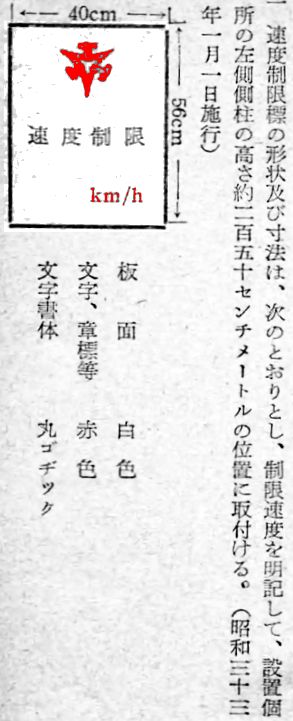 一 速度制限標の形状及び寸法は、次のとおりとし、制限速度を明記して、設置個
所の左側側柱の高さ約二百五十センチメートルの位置に取付ける。（昭和三十三
年一月一日施行）
40cm
56cm
速度制限
km/h
板面 白色
文字、章標等 赤色
文字書体 丸ゴヂック